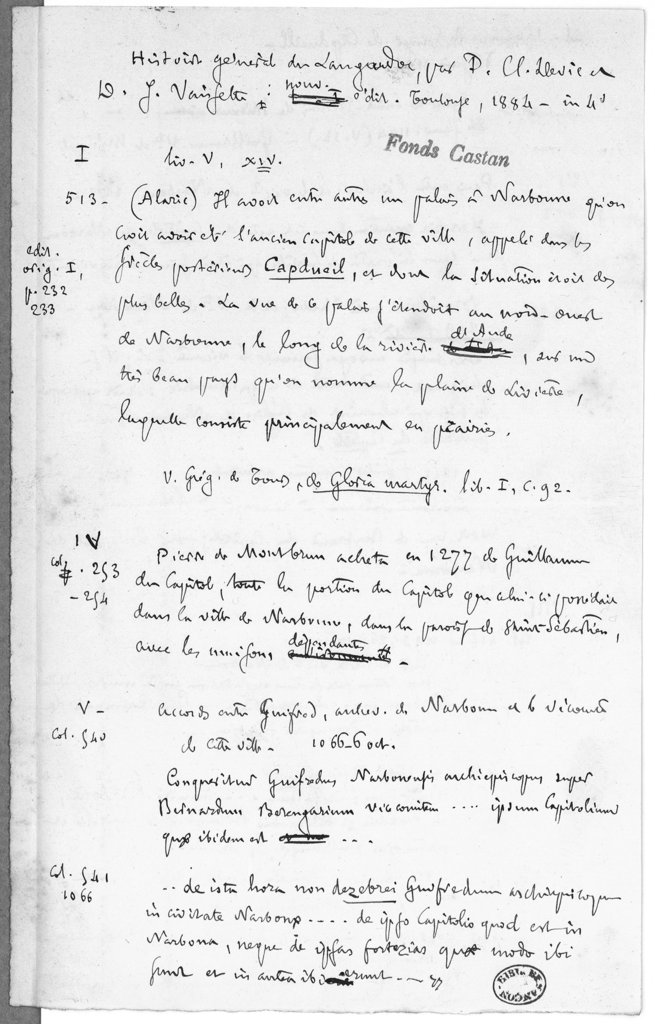 Histoire general du Languedoc, par D. Cl. Devic et
D. J. Vaissette : nouv. édit. Toulouse, 1884 - in 4°
Fonds Castan
I liv. V, XIV.
513 - (Alaric) Il avoit entre autres un palais à Narbonne qu'on
croit avoir été l'ancien Capitole de cette ville, appelé dans les
edit. orig. I, p. 232 233
siècles postérieurs Capdueil, et dont la situation étoit des
plus belles. La vue de ce palais s'étendoit au nord-ouest
de Narbonne, le long de la rivière d'Aude, sur un
très beau pays qu'on nomme la plaine de Livière,
laquelle consiste principalement en prairies.
V. Grég. de Tours, de Gloria martyr. lib. I, c. 92.
IV
col. 253 - 254
Pierre de Montbrun acheta en 1277 de Guillaume
du Capitol, toute la portion du Capitol que celui-ci possédait
dans la ville de Narbonne, dans la paroisse de Saint Sébastien,
avec les maisons dépendantes.
V -
Col. 540
Accords entre Guifred, archev. de Narbonne et le vicomte
de cette ville - 1066-6 oct.
Conqueritur Guifredus Narbonensis archiepiscopus super
Bernardum Berengarium vicecomitem .... ipsum Capitolium
quod ibidem est ...
Col. 541
1066
.. de ista hora non dezebrei Guifredum archiepiscopum
in civitate Narbona .... de ipso Capitolio quod est in
Narbona, neque de ipsas fortezias quae modo ibi
sunt et in antea ibi erunt ... "
BIBL. DE BESANÇON